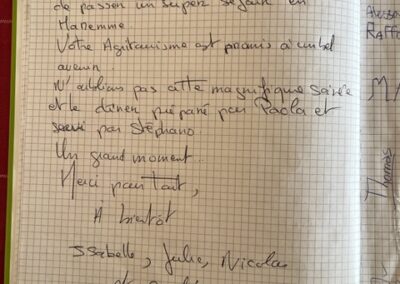 de passer un super séjour en
Maremme.
Votre Agitourisme est promis à un bel
avenir
N'oublions pas cette magnifique soirée
et le dîner préparé par Paola et
servi par Stéphano.
Un grand moment..
Merci pour Tout,
A bientôt
Isabelle, Julie, Nicolas
Thomas